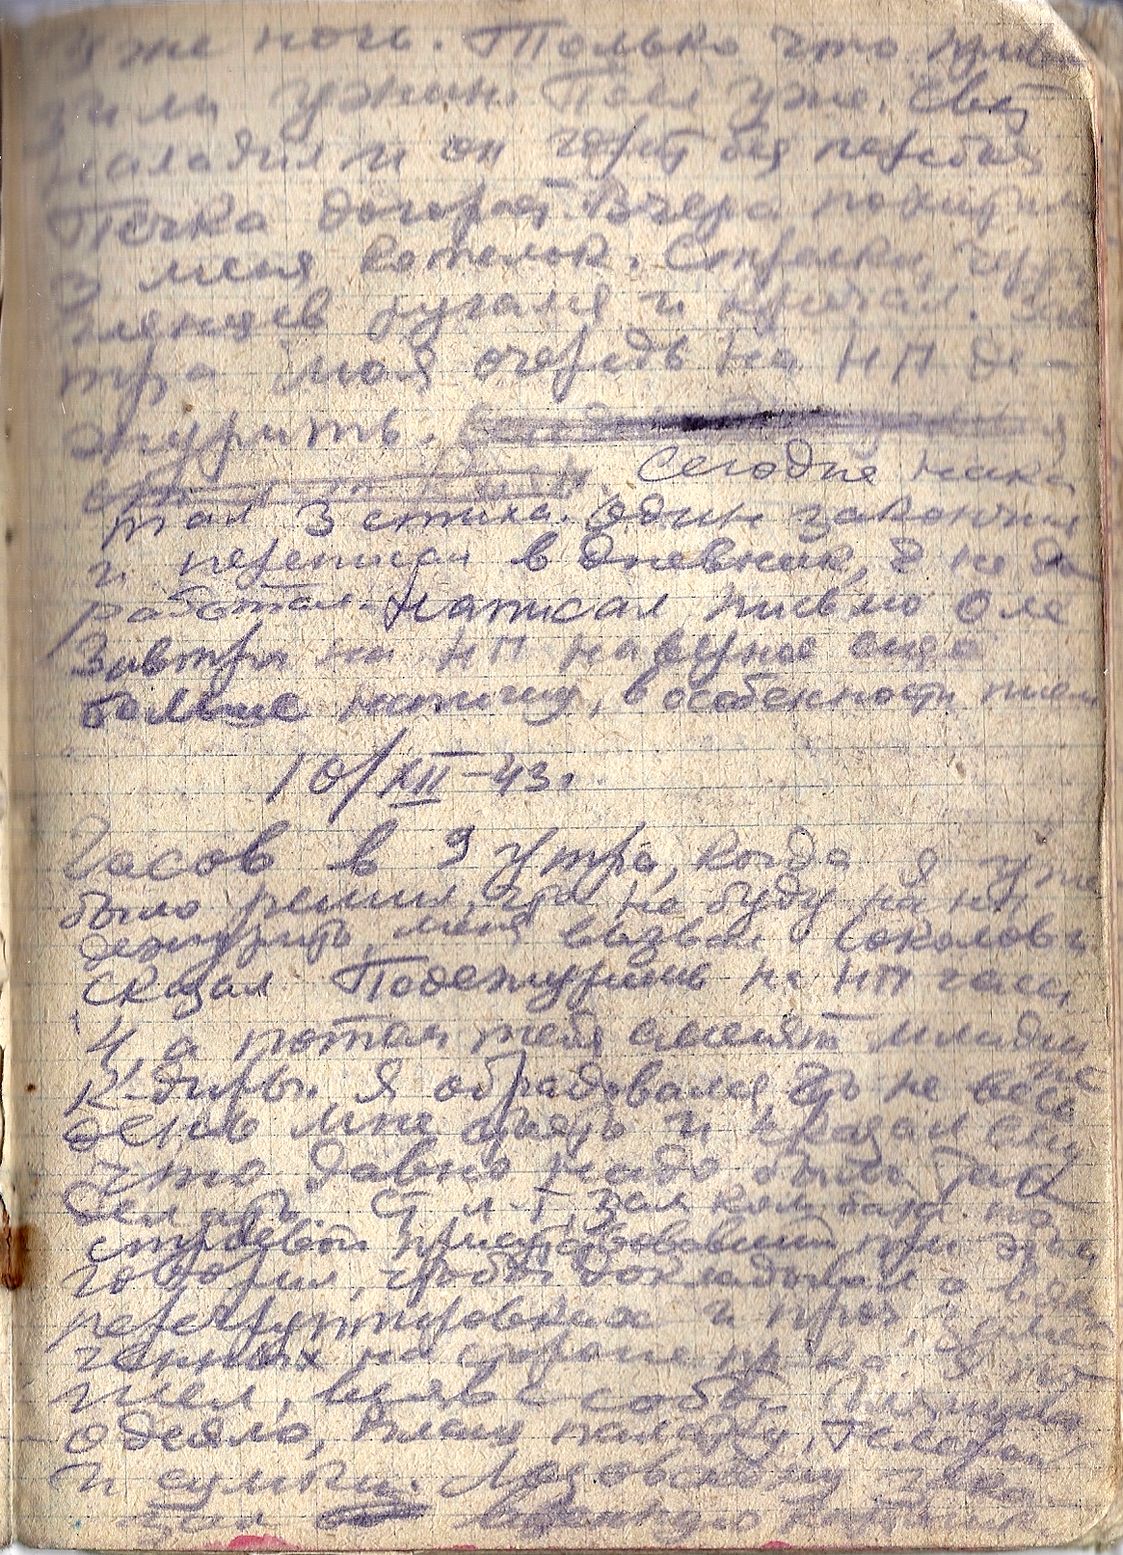 Уже ночь. Только что
ужин. Поел уже. Свет
наладил и он горит без перебоя
Печка догорает. Вчера
меня котелок.
ругался и кричал. За
тра моя очередь на НП де-
журить.
Сегодня нака
тал 3 стиха. Один закончил
и переписал в дневник, 2 не до
работал. Написал письмо Оле
Завтра на НП наверное еще
больше напишу, в особенности писем
10/XII-43.
Часов в 9 утра, когда я уже
было решил, что не буду на НП
дежурить, меня вызвал Соколов и
сказал. Подежуришь на НП часа
4, а потом тебя сменят младшие
к-диры. Я обрадовался, что не весь
день мне сидеть и сказал ему
что давно надо было так
делать. Ст. л-т, зам. ком. бат. по
строевой присутствовавший при этом
говорил, чтобы докладывал о всех
перегруппировках и проч. замеч
генных на стороне пр-ка. Я по
шел, взяв с собой
одеяло, плащ палатку, телефон
и сумки.